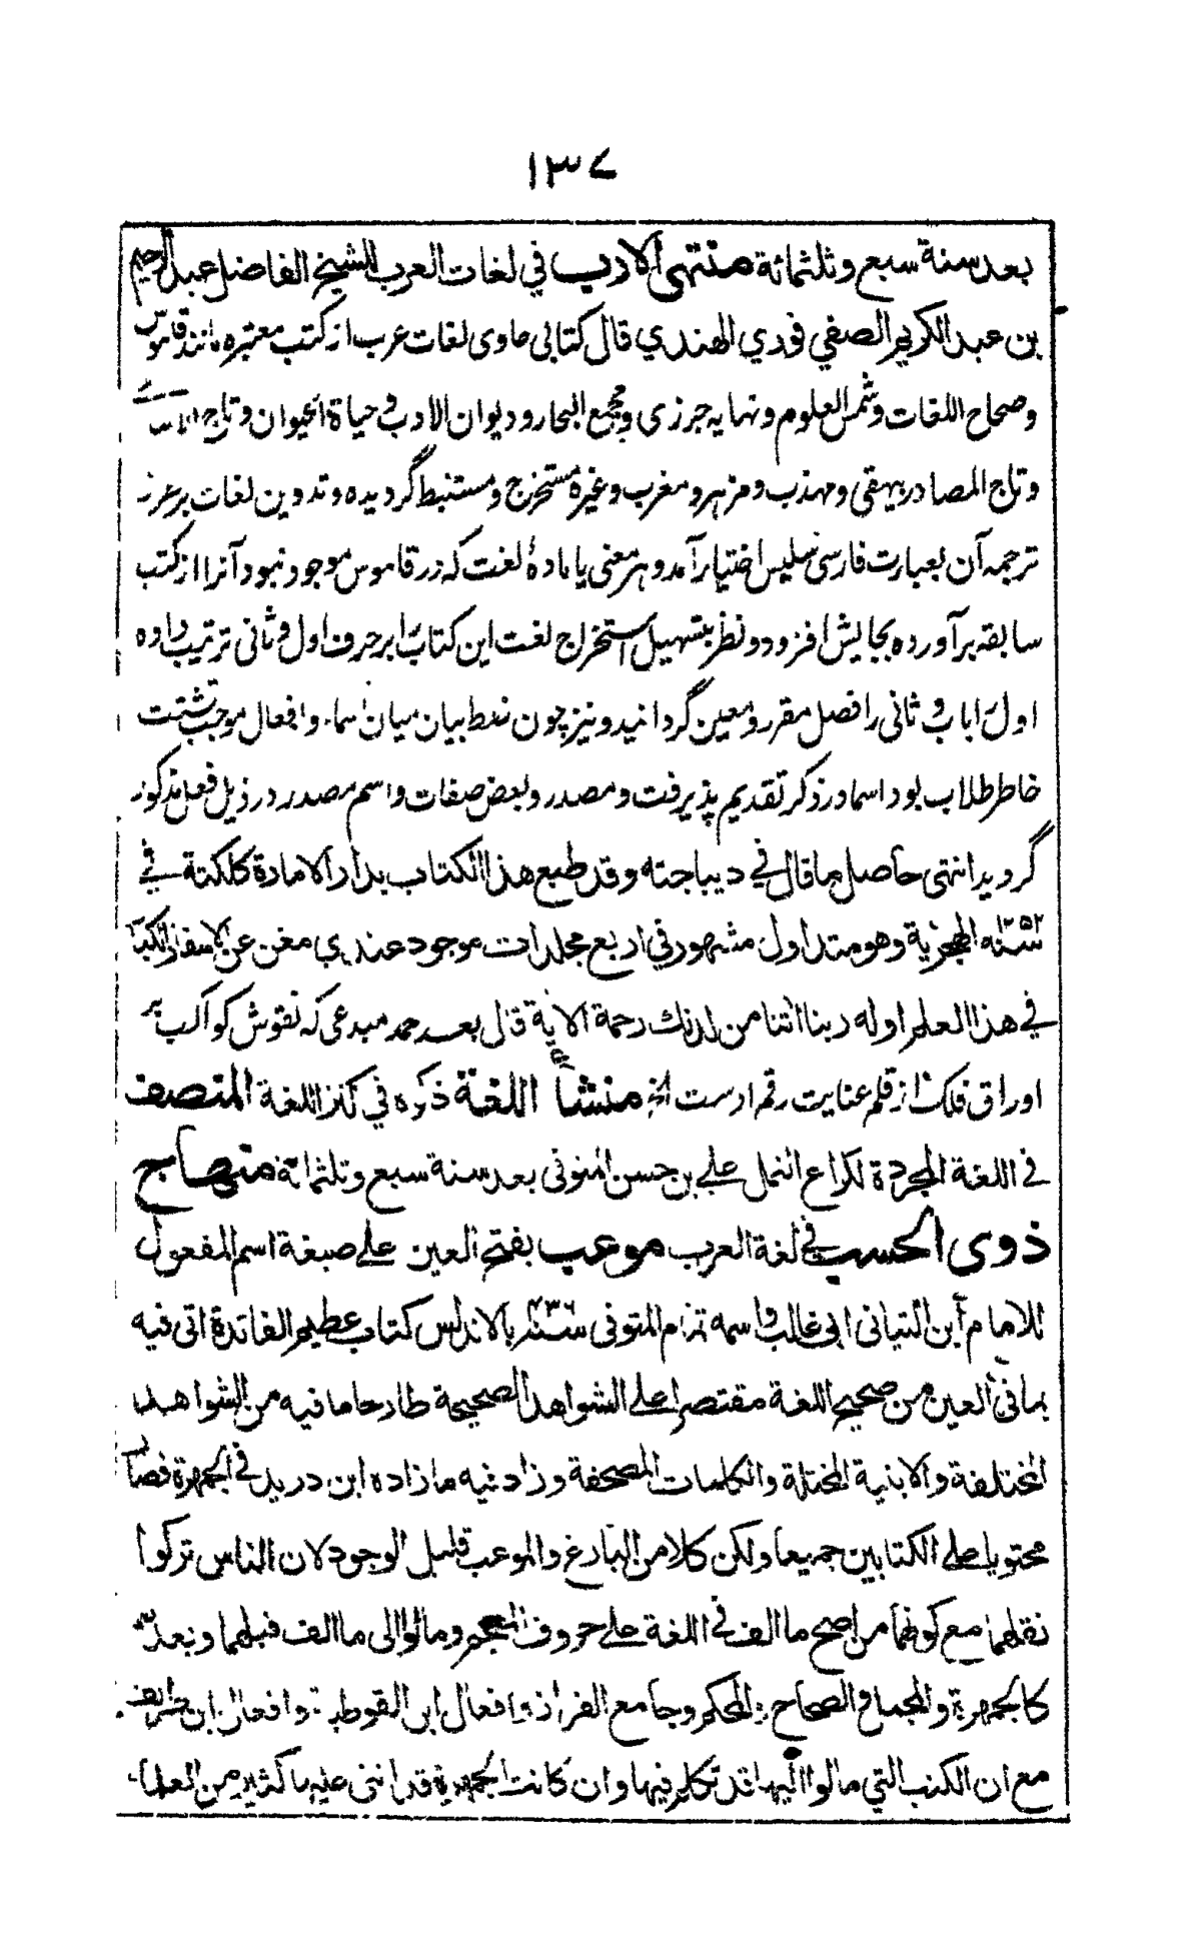 ١٣٧
بعد سنة سبع وثلثمائة منتهى الارب في لغات العرب للشيخ الفاضل عبد الرحيم
بن عبد الكريم الصفي فوري الهندي قال كتابى حاوى لغات عرب از كتب معتبره مانند قاموس
وصحاح اللغات وشمس العلوم ونهايه جزرى ومجمع البحار وديوان الادب وحياة الحيوان وتاج الاسماء
وتاج المصادر بيهقى ومهذب ومزهر ومغرب وغيره مستخرج ومستنبط گرديده وتدوين لغات بر
ترجمه آن بعبارت فارسى سليس اختيار آمد وهر معنى يا مادۀ لغت كه در قاموس موجود نبود آنرا از كتب
سابقه برآورده بجايش افزود ونظر بتسهيل استخراج لغت اين كتاب را بر حرف اول وثانى ترتيب داده
اول را باب وثانى را فصل مقرر ومعين گردانيد ونيز چون نمط بيان ميان اسماء وافعال موجب تشتت
خاطر طلاب بود اسما در ذكر تقديم پذيرفت ومصدر وبعض صفات واسم مصدر در ذيل فعل مذكور
گرديد انتهى حاصل ما قال في ديباجته وقد طبع هذا الكتاب بدار الامارة كلكتة في
سنة ١٢٥٢ الهجرية وهو متداول مشهور في اربع مجلدات موجود عندي مغن عن الاسفار الكبار
في هذا العلم اوله ربنا اتنا من لدنك رحمة الاية قال بعد حمد مبدعى كه نقوش كواكب بر
اوراق فلك از قلم عنايت رقم اوست الخ منشأ اللغة ذكره في كنز اللغة المنصف
في اللغة المجردة لكراع النمل علي بن حسن المتوفى بعد سنة سبع وثلثمائة منهاج
ذوى الحسب في لغة العرب موعب بفتح العين على صيغة اسم المفعول
للامام ابن التيانى ابى غالب واسمه تمام المتوفى سنة ٤٣٦ بالاندلس كتاب عظيم الفائدة اتى فيه
بما في العين من صحيح اللغة مقتصرا على الشواهد الصحيحة طارحا ما فيه من الشواهد
المختلفة والابنية المختلة والكلمات المصحفة وزاد فيه ما زاده ابن دريد في الجمهرة فصار
محتويا على الكتابين جميعا ولكن كلا من البارع والموعب قليل الوجود لان الناس تركوا
نقلهما مع كونهما من اصح ما الف في اللغة على حروف المعجم ومالوا الى ما الف قبلهما وبعدهما
كالجمهرة والمجمل والصحاح والمحكم وجامع الفراز وافعال ابن القوطية وافعال ابن طريف
مع ان الكتب التي مالوا اليها قد تكلم فيها وان كانت الجمهرة قد اثنى عليها كثير من العلماء